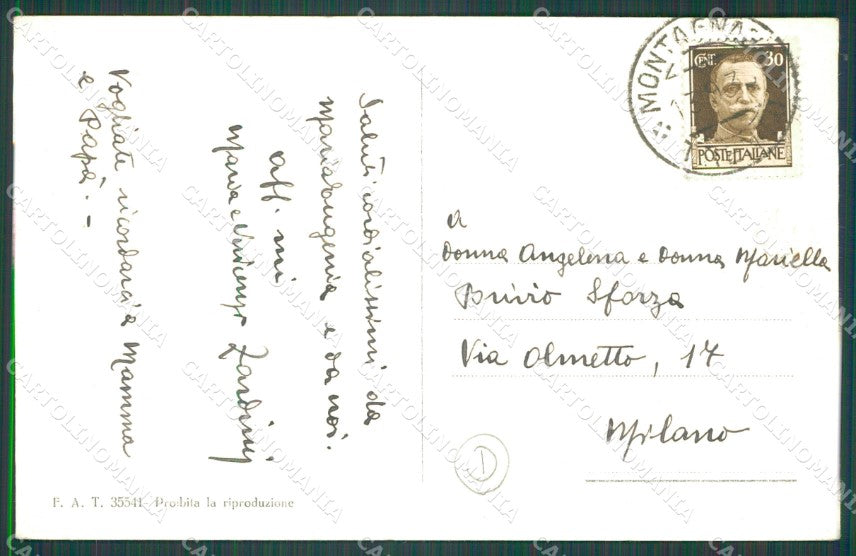 Saluti cordialissimi da
Mariaeugenia e da noi.
aff.mi
Maria e
Vogliate ricordarci a Mamma
e Papà. -
MONTAGNA
CENT. 30
POSTE ITALIANE
A
Donna Angelena e Donna Mariella
Brivio Sforza
Via Olmetto, 17
Milano
D
F. A. T. 35541 - Proibita la riproduzione
CARTOLINOMANIA